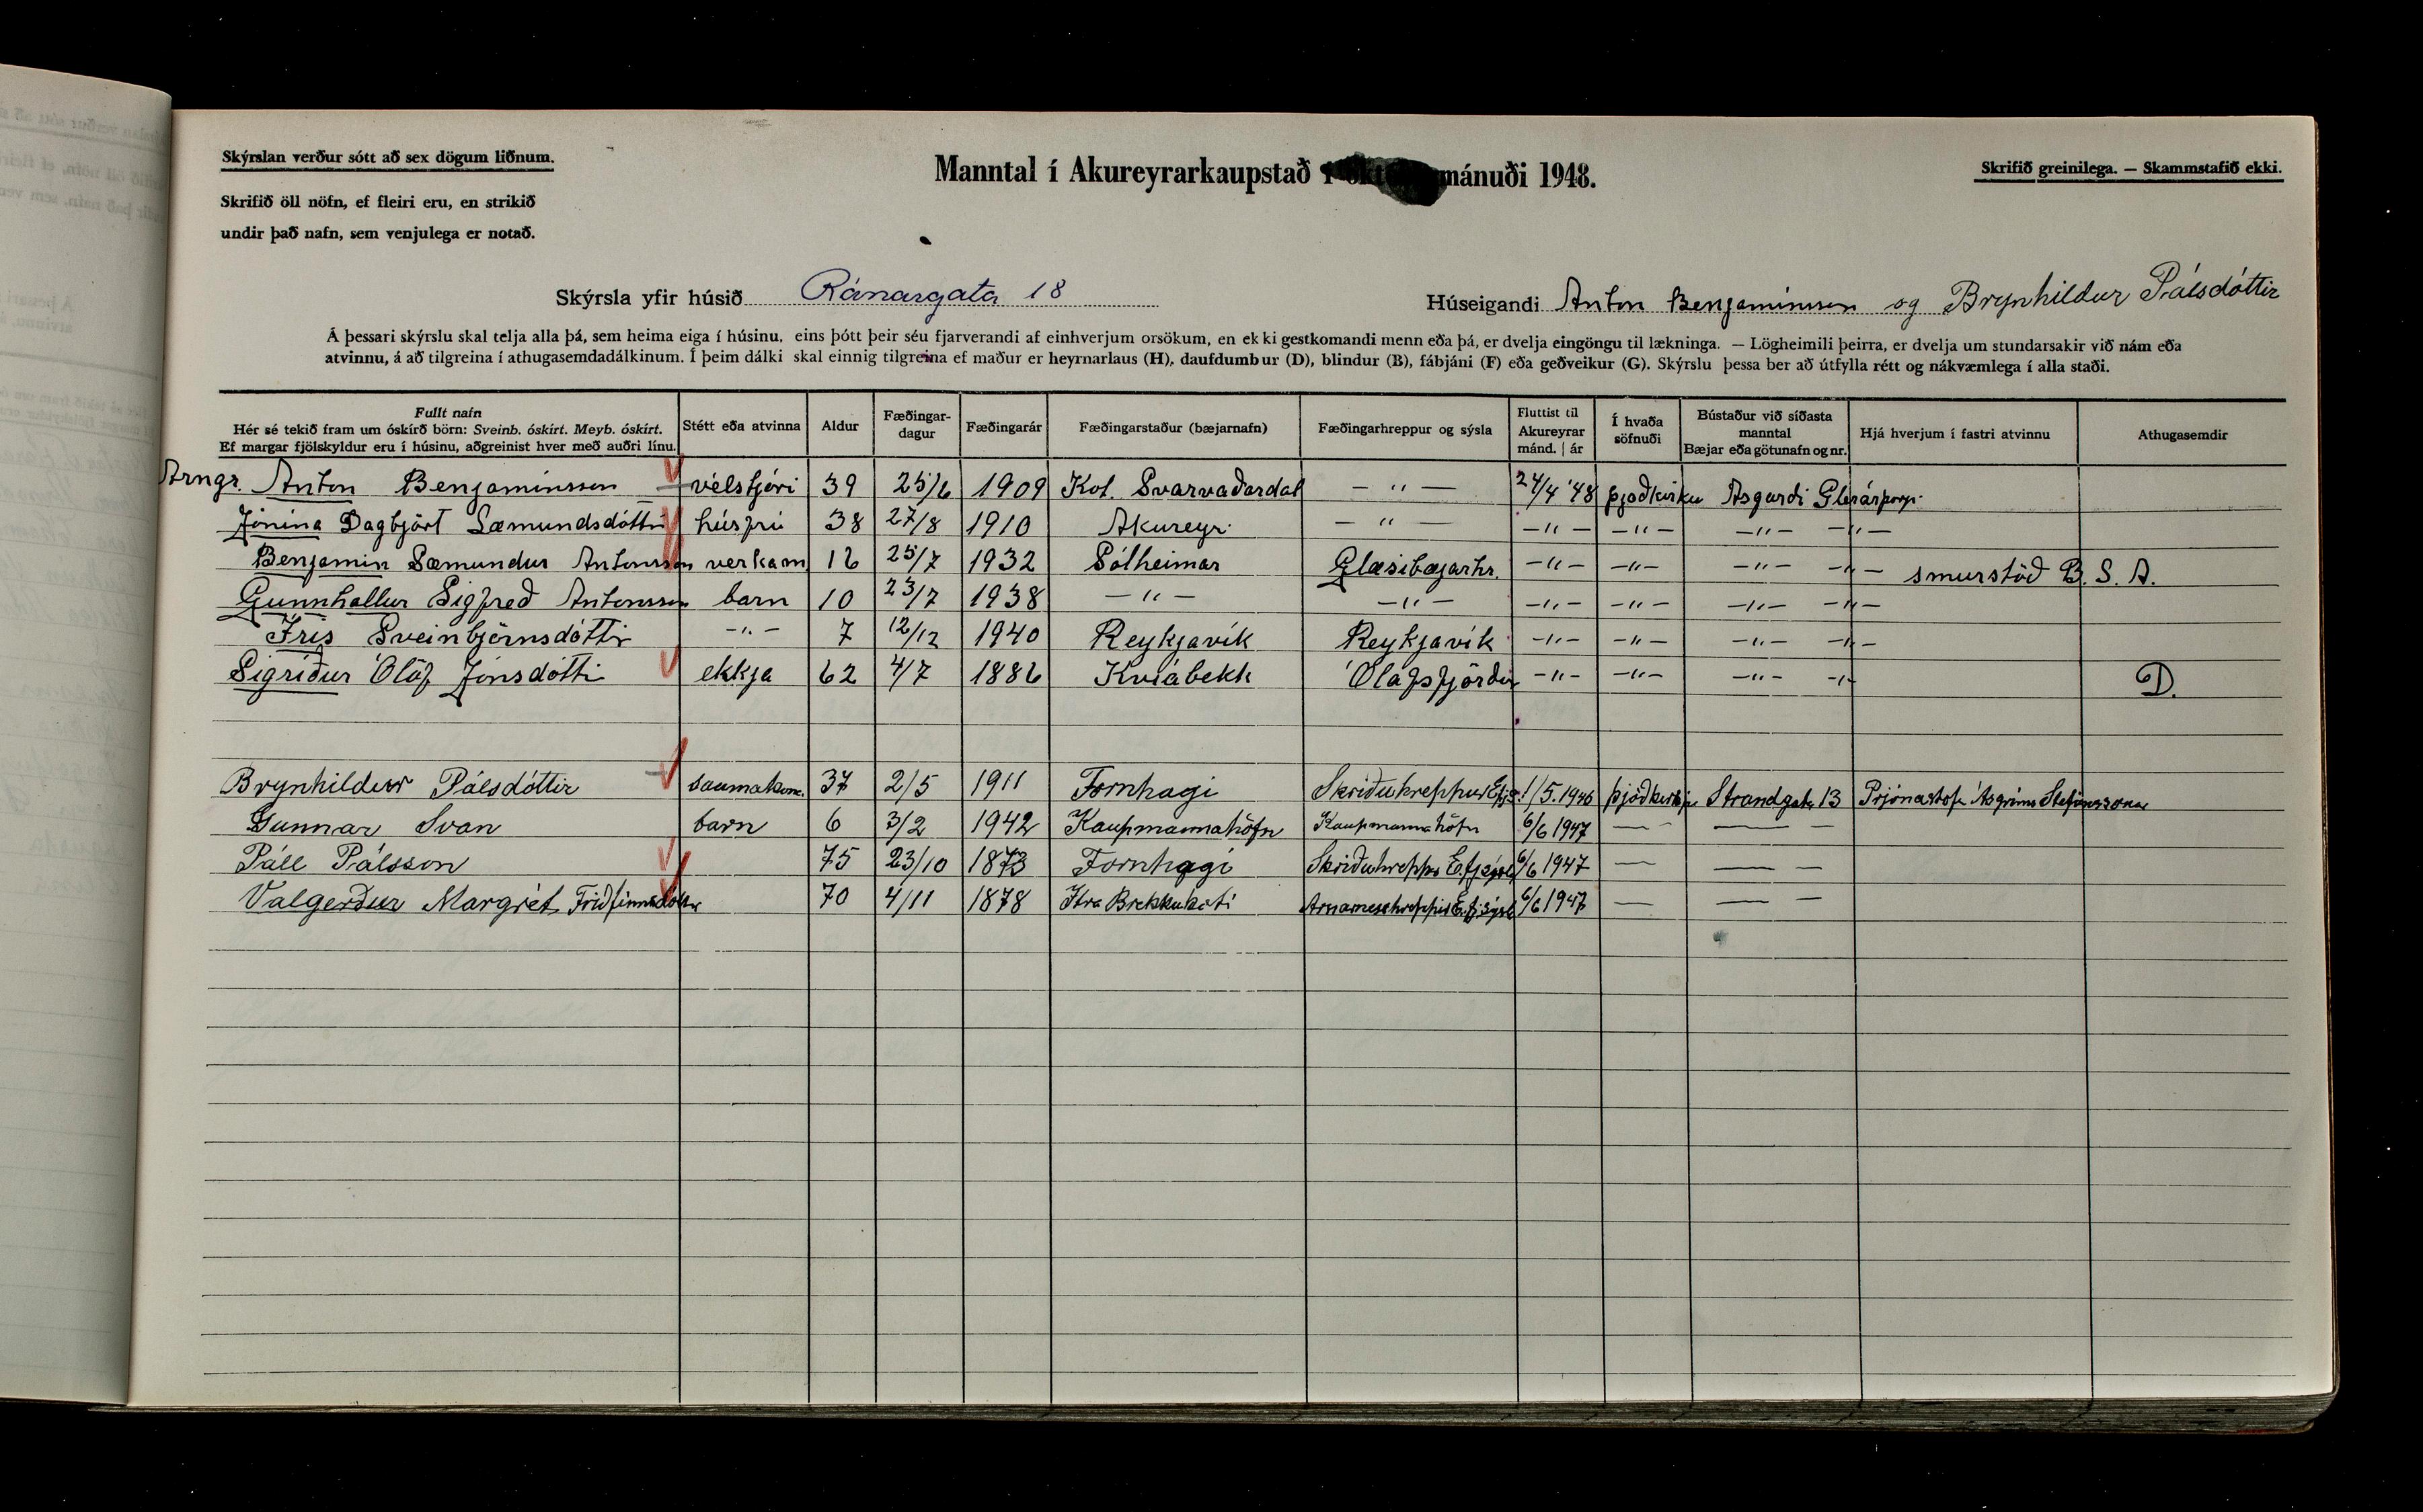 Skýrslan verður sótt að sex dögum liðnum.
Skrifið öll nöfn, ef fleiri eru, en strikið
undir það nafn, sem venjulega er notað.
Manntal í Akureyrarkaupstað í mánuði 1948.
Skrifið greinilega. — Skammstafið ekki.
Skýrsla yfir húsið Ránargata 18
Húseigandi Anton Benjamínsson og Brynhildur Pálsdóttir
Á þessari skýrslu skal telja alla þá, sem heima eiga í húsinu, eins þótt þeir séu fjarverandi af einhverjum orsökum, en ekki gestkomandi menn eða þá, er dvelja eingöngu til lækninga. — Lögheimili þeirra, er dvelja um stundarsakir við nám eða
atvinnu, á að tilgreina í athugasemdadálkinum. Í þeim dálki skal einnig tilgreina ef maður er heyrnarlaus (H), daufdumbur (D), blindur (B), fábjáni (F) eða geðveikur (G). Skýrslu þessa ber að útfylla rétt og nákvæmlega í alla staði.
Fullt nafn
Hér sé tekið fram um óskírð börn: Sveinb. óskírt. Meyb. óskírt.
Ef margar fjölskyldur eru í húsinu, aðgreinist hver með auðri línu.
Stétt eða atvinna
Aldur
Fæðingar-
dagur
Fæðingarár
Fæðingarstaður (bæjarnafn)
Fæðingarhreppur og sýsla
Fluttist til
Akureyrar
mánd. | ár
Í hvaða
söfnuði
Bústaður við síðasta
manntal
Bæjar eða götunafn og nr.
Hjá hverjum í fastri atvinnu
Athugasemdir
Arngr. Anton Benjamínsson vélstjóri 39 25/6 1909 Kot. Svarvaðardal — " — 24/4 '48 þjóðkirkju Ásgarði Glerárþorpi
Jónína Dagbjört Sæmundsdóttir húsfrú 38 27/8 1910 Akureyri — " — — " — — " — — " — — " —
Benjamín Sæmundur Antonsson verkam. 16 25/7 1932 Sólheimar Glæsibæjarhr. — " — — " — — " — — " — smurstöð B. S. A.
Gunnhallur Sigfreð Antonsson barn 10 23/7 1938 — " — — " — — " — — " — — " — — " —
Íris Sveinbjörnsdóttir — " — 7 12/12 1940 Reykjavík Reykjavík — " — — " — — " — — " —
Sigríður Ólöf Jónsdóttir ekkja 62 4/7 1886 Kvíabekk Ólafsfjörður — " — — " — — " — — " — D.
Brynhildur Pálsdóttir saumakona. 37 2/5 1911 Fornhagi Skriðuhreppur Efjs. 1/5.1946 þjóðkirkju Strandgata 13 Prjónastofa Ásgríms Stefánssonar
Gunnar Svan barn 6 3/2 1942 Kaupmannahöfn Kaupmannahöfn 6/6 1947 — — —
Páll Pálsson 75 23/10 1873 Fornhagi Skriðuhreppi E.fj.sýsl 6/6 1947 — — —
Valgerður Margrét Friðfinnsdóttir 70 4/11 1878 Ytra Brekkukoti Arnarneshreppi E.fj.sýsl 6/6 1947 — — —